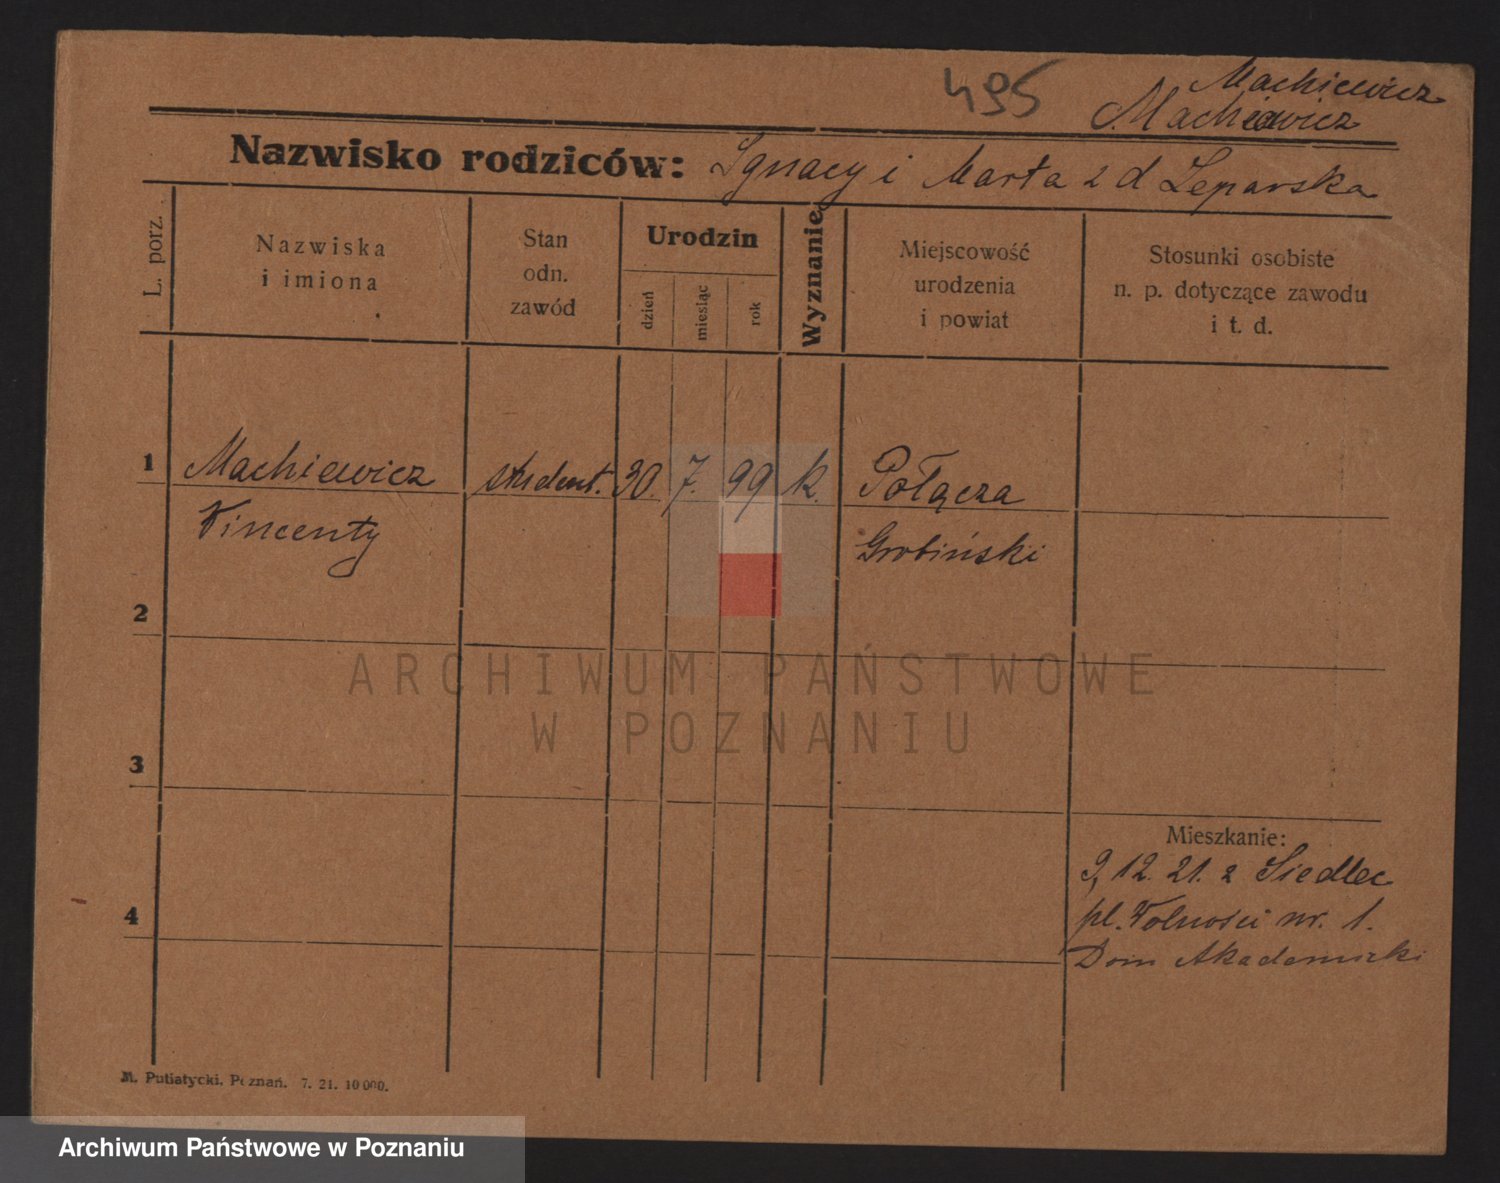 495
Machiewicz
Machiewicz
Nazwisko rodziców: Ignacy i Marta z d Leparska
L. porz.
Nazwiska
i imiona
Stan
odn.
zawód
Urodzin
dzień
miesiąc
rok
Wyznanie
Miejscowość
urodzenia
i powiat
Stosunki osobiste
n. p. dotyczące zawodu
i t. d.
1 Machiewicz student. 30. 7. 99 k. Połącza
Vincenty Grobiński
2
ARCHIWUM PAŃSTWOWE
W POZNANIU
3
Mieszkanie:
9, 12. 21. z Siedlec
4 pl. Wolności nr. 1.
Dom Akademicki
M. Putiatycki. Poznań. 7. 21. 10 000.
Archiwum Państwowe w Poznaniu